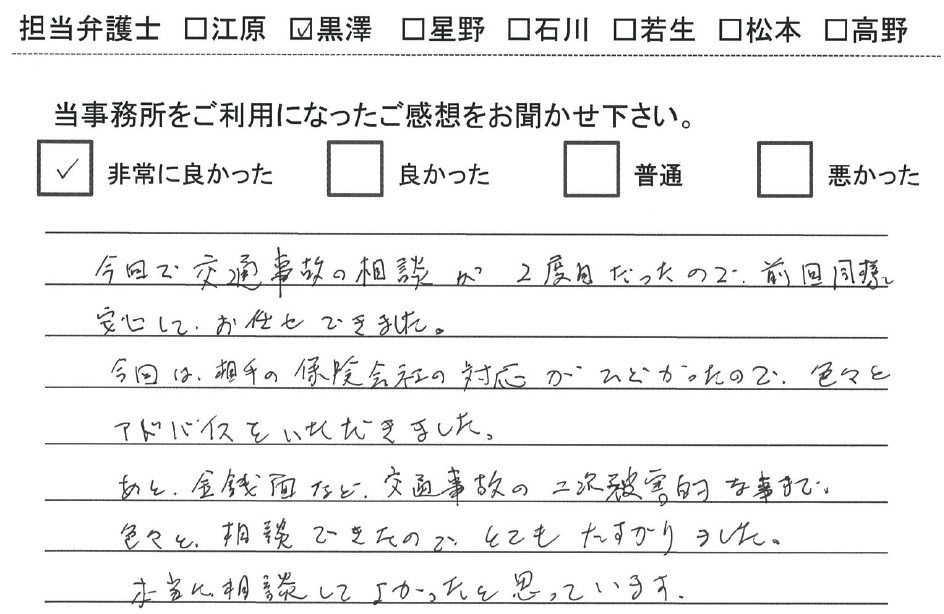 担当弁護士 □江原 ☑黒澤 □星野 □石川 □若生 □松本 □高野
当事務所をご利用になったご感想をお聞かせ下さい。
☑ 非常に良かった □ 良かった □ 普通 □ 悪かった
今回で交通事故の相談が2度目だったので、前回同様、
安心して、お任せできました。
今回は、相手の保険会社の対応がひどかったので、色々と
アドバイスをいただきました。
あと、金銭面など、交通事故の二次被害的な事まで、
色々と、相談できたので、とてもたすかりました。
本当に相談してよかったと思っています。